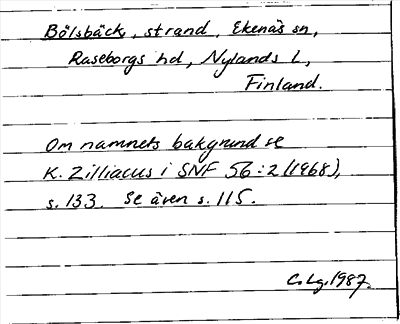 Bölsbäck, strand, Ekenäs sn,
Raseborgs hd, Nylands l,
Finland.
Om namnets bakgrund se
K. Zilliacus i SNF 56:2 (1968),
s. 133. Se även s. 115.
C. Lg. 1987.